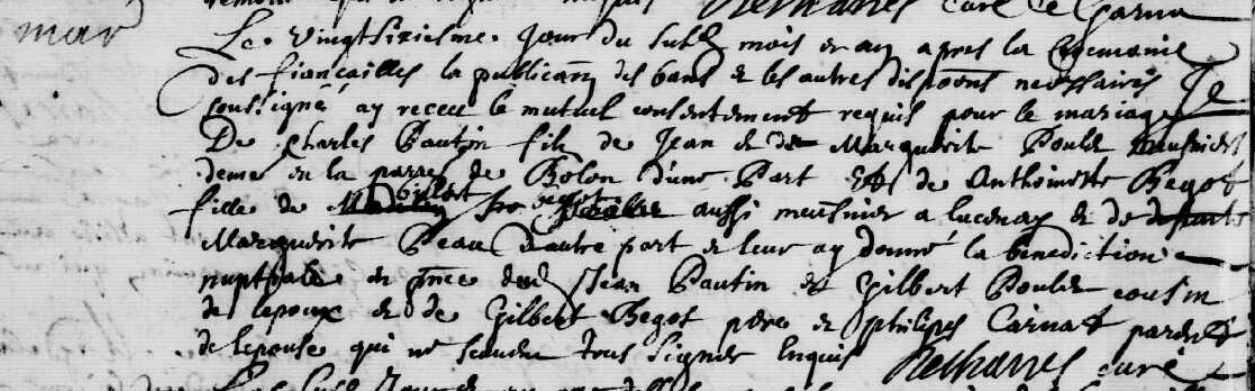 curé de
mar
Le vingtsixiesme Jour du susd mois et an apres la Ceremonie
des fiancailles la publicaon des bans et les autres disp̃oons necessaires Je
soussigné ay receu le mutuel consentement requis pour le mariage
De Charles Pautin fils de Jean et de Marguerite Poulet meusnier
demt en la parroe de Bolon d'une Part Et de Anthoinette Begot
fille de Gilbert Begot aussi meusnier a lucenay et de deffunte
Marguerite Beau d'autre part et leur ay donné la benediction
nuptiale en p̃nce de Jean Pautin et Gilbert Poulet cousin
de lepoux et de Gilbert Begot pere et philipes Carnat parent
de lepouse qui ne scavent tous signer Enquis curé